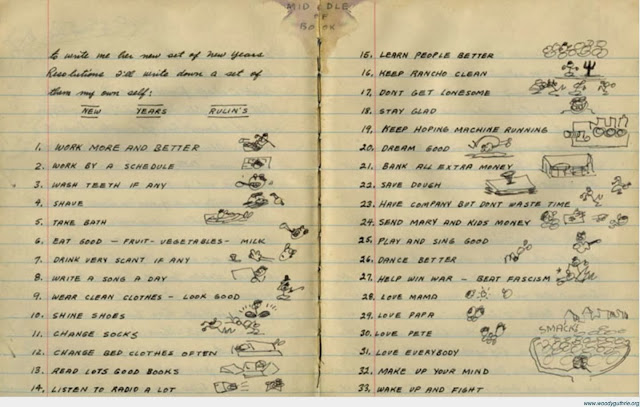 MIDDLE
OF
BOOK
to write me her new set of New Years
Resolutions I'll write down a set of
them my own self:
NEW YEARS RULIN'S
1. WORK MORE AND BETTER
2. WORK BY A SCHEDULE
3. WASH TEETH IF ANY
4. SHAVE
5. TAKE BATH
6. EAT GOOD — FRUIT - VEGETABLES - MILK
7. DRINK VERY SCANT IF ANY
8. WRITE A SONG A DAY
9. WEAR CLEAN CLOTHES — LOOK GOOD
10. SHINE SHOES
11. CHANGE SOCKS
12. CHANGE BED CLOTHES OFTEN
13. READ LOTS GOOD BOOKS
14. LISTEN TO RADIO A LOT
15. LEARN PEOPLE BETTER
16. KEEP RANCHO CLEAN
17. DONT GET LONESOME
18. STAY GLAD
19. KEEP HOPING MACHINE RUNNING
20. DREAM GOOD
21. BANK ALL EXTRA MONEY
22. SAVE DOUGH
23. HAVE COMPANY BUT DONT WASTE TIME
24. SEND MARY AND KIDS MONEY
25. PLAY AND SING GOOD
26. DANCE BETTER
27. HELP WIN WAR — BEAT FASCISM
28. LOVE MAMA
29. LOVE PAPA
30. LOVE PETE
SMACK!
31. LOVE EVERYBODY
32. MAKE UP YOUR MIND
33. WAKE UP AND FIGHT
www.woodyguthrie.org